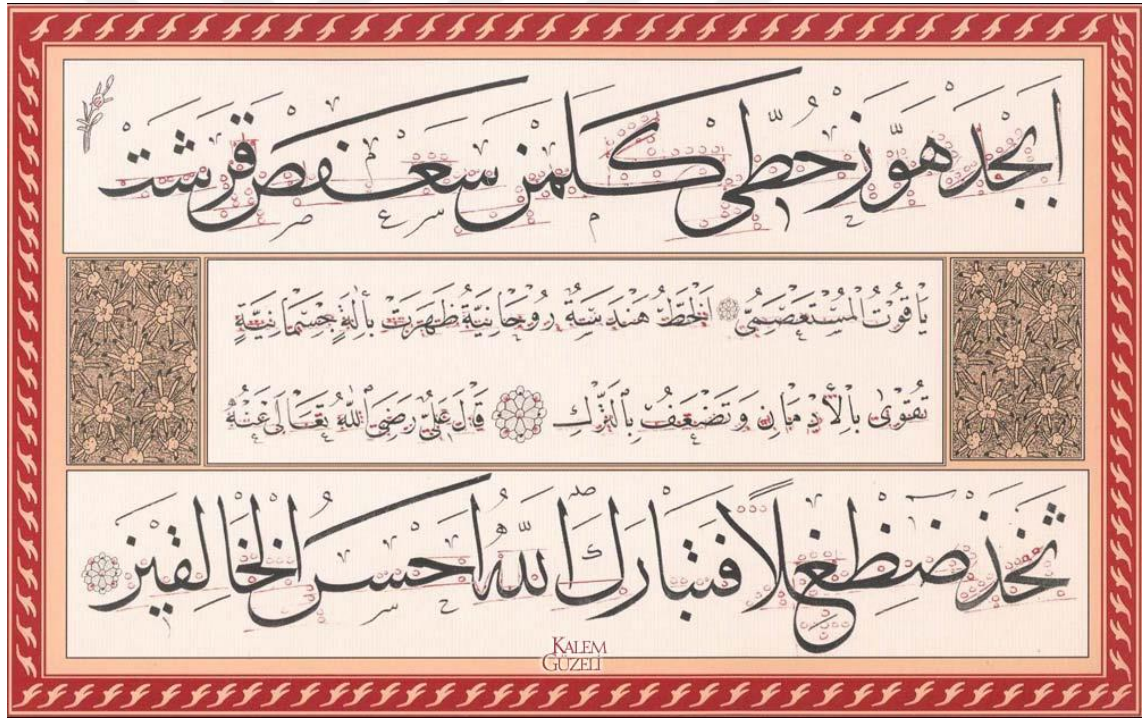 ابجد هوّز حطّي كلمن سعفص قرشت
يَاقُوتُ الْمُسْتَعْصِمِيُّ اَلْخَطُّ هَنْدَسَةٌ رُوحَانِيَّةٌ ظَهَرَتْ بِاٰلَةٍ جِسْمَانِيَّةٍ
تَقْوٰى بِالْاِدْمَانِ وَتَضْعَفُ بِالتَّرْكِ قَالَ عَلِيٌّ رَضِيَ اللّٰهُ تَعَالٰى عَنْهُ
ثخذ ضظغلا فتبارك الله احسن الخالقين
KALEM
GÜZELİ